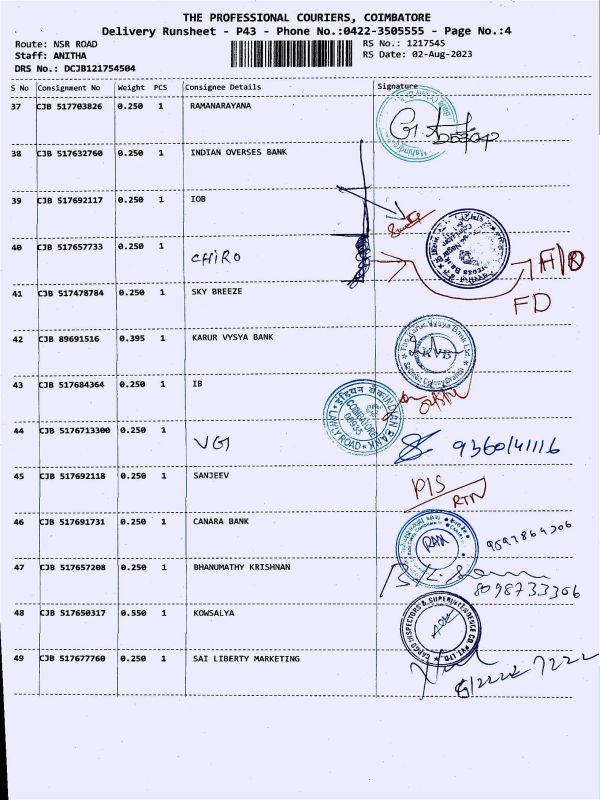 THE PROFESSIONAL COURIERS, COIMBATORE
Delivery Runsheet - P43 - Phone No.:0422-3505555 - Page No.:4
Route: NSR ROAD
RS No.: 1217545
Staff: ANITHA
RS Date: 02-Aug-2023
DRS No.: DCJB121754504
S No Consignment No Weight PCS Consignee Details Signature
37 CJB 517703826 0.250 1 RAMANARAYANA
38 CJB 517632760 0.250 1 INDIAN OVERSES BANK
39 CJB 517692117 0.250 1 IOB
40 CJB 517657733 0.250 1 CHIRO
FD
41 CJB 517478784 0.250 1 SKY BREEZE
42 CJB 89691516 0.395 1 KARUR VYSYA BANK
KVB
43 CJB 517684364 0.250 1 IB
INDIAN BANK
COIMBATORE
LAWLY ROAD
44 CJB 5176713300 0.250 1 VGI
9360141116
45 CJB 517692118 0.250 1 SANJEEV P/S
RTN
46 CJB 517691731 0.250 1 CANARA BANK
RAM
47 CJB 517657208 0.250 1 BHANUMATHY KRISHNAN
8098733366
48 CJB 517650317 0.550 1 KOWSALYA
49 CJB 517677760 0.250 1 SAI LIBERTY MARKETING